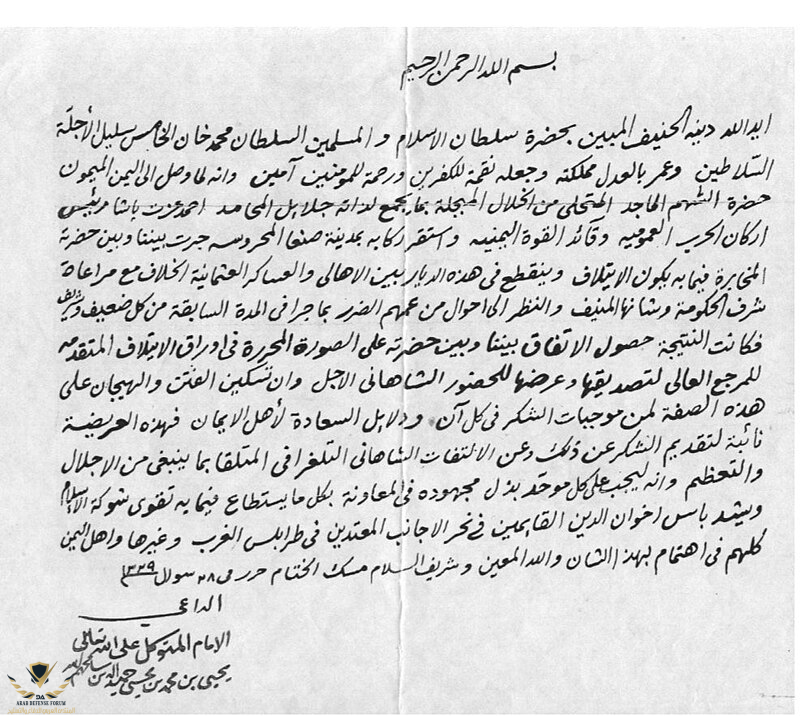 بسم الله الرحمن الرحيم
ايد الله دينه الحنيف المبين بحضرة سلطان الاسلام و المسلمين السلطان محمد خان الخامس سليل الأجلة
السلاطين وعمر بالعدل مملكته وجعله نقمة للكفرين ورحمة للمومنين آمين وانه لما وصل الى اليمن الميمون
حضرة الشهم الماجد المتحلى من الخلال المبجلة بما يجمع لذاته جلايل المحامد احمد عزت باشا رئيس
اركان الحرب العموميه وقائد القوة اليمنيه واستقر ركابه بمدينة صنعا المحروسه جرت بيننا وبين حضرته
المخابرة فيما به يكون الايتلاف وينقطع فى هذه الديار بين الاهالى والعساكر العثمانية الخلاف مع مراعاة
شرف الحكومة وشانها المنيف والنظر الى احوال من عمهم الضرر بما جرا فى المدة السابقة من كل ضعيف وشريف
فكانت النتيجة حصول الاتفاق بيننا وبين حضرته على الصورة المحررة فى اوراق الايتلاف المتقدمه
للمرجع العالى لتصديقها وعرضها للحضور الشاهانى الاجل وان تسكين الفتن والهيجان على
هذه الصفة لمن موجبات الشكر فى كل آن ودلايل السعادة لأهل الايمان فهذه العريضة
نائبة لتقديم التشكر عن ذلك وعن الالتفات الشاهانى التلغرافى المتلقا بما ينبغى من الاجلال
والتعظيم وانه ليجب على كل موحد بذل مجهوده فى المعاونة بكل ما يستطاع فيما به تقوى شوكة الاسلام
ويشد باس اخوان الدين القايمين فى نحر الاجانب المعتدين فى طرابلس الغرب وغيرها واهل اليمن
كلهم فى اهتمام بهذ الشان والله المعين وشريف السلام مسك الختام حرر فى ٢٨ سوال ١٣٢٩
الداعي
الامام المتوكل على الله تعالى
يحيى بن محمد بن يحيى حميد الدين
ARAB DEFENSE FORUM